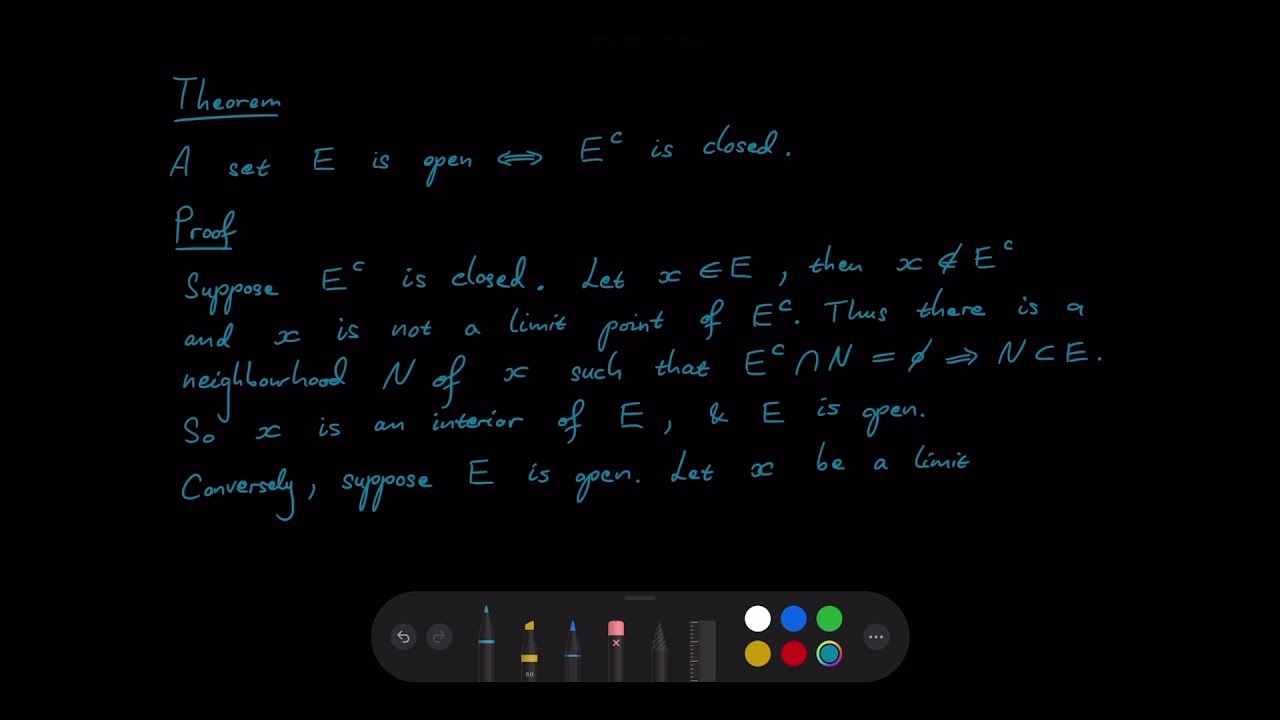 Theorem
A set E is open ⟺ Eᶜ is closed.
Proof
Suppose Eᶜ is closed. Let x ∈ E, then x ∉ Eᶜ
and x is not a limit point of Eᶜ. Thus there is a
neighbourhood N of x such that Eᶜ ∩ N = ∅ ⟹ N ⊂ E.
So x is an interior of E, & E is open.
Conversely, suppose E is open. Let x be a limit
80